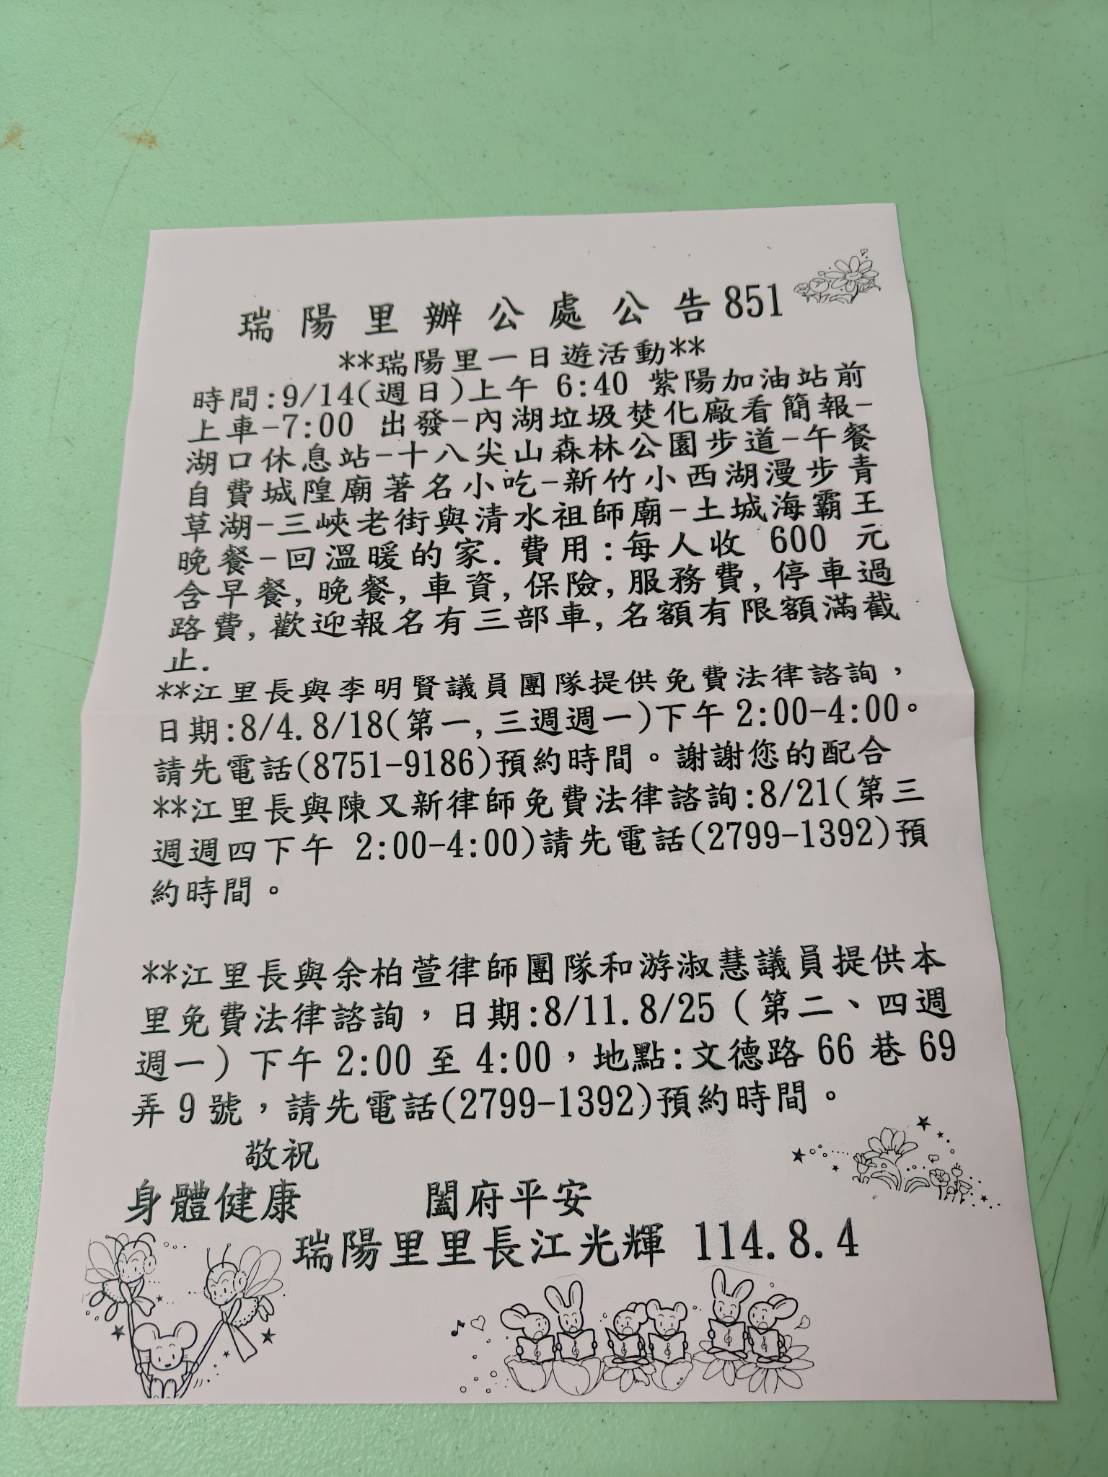 瑞陽里辦公處公告851
**瑞陽里一日遊活動**
時間:9/14(週日)上午 6:40 紫陽加油站前
上車-7:00 出發-內湖垃圾焚化廠看簡報-
湖口休息站-十八尖山森林公園步道-午餐
自費城隍廟著名小吃-新竹小西湖漫步青
草湖-三峽老街與清水祖師廟-土城海霸王
晚餐-回溫暖的家.費用:每人收 600 元
含早餐,晚餐,車資,保險,服務費,停車過
路費,歡迎報名有三部車,名額有限額滿截
止.
**江里長與李明賢議員團隊提供免費法律諮詢,
日期:8/4.8/18(第一,三週週一)下午2:00-4:00。
請先電話(8751-9186)預約時間。謝謝您的配合
**江里長與陳又新律師免費法律諮詢:8/21(第三
週週四下午 2:00-4:00)請先電話(2799-1392)預
約時間。
**江里長與余柏萱律師團隊和游淑慧議員提供本
里免費法律諮詢,日期:8/11.8/25(第二、四週
週一)下午2:00 至4:00,地點:文德路66巷69
弄9號,請先電話(2799-1392)預約時間。
敬祝
身體健康 闔府平安
瑞陽里里長江光輝 114.8.4